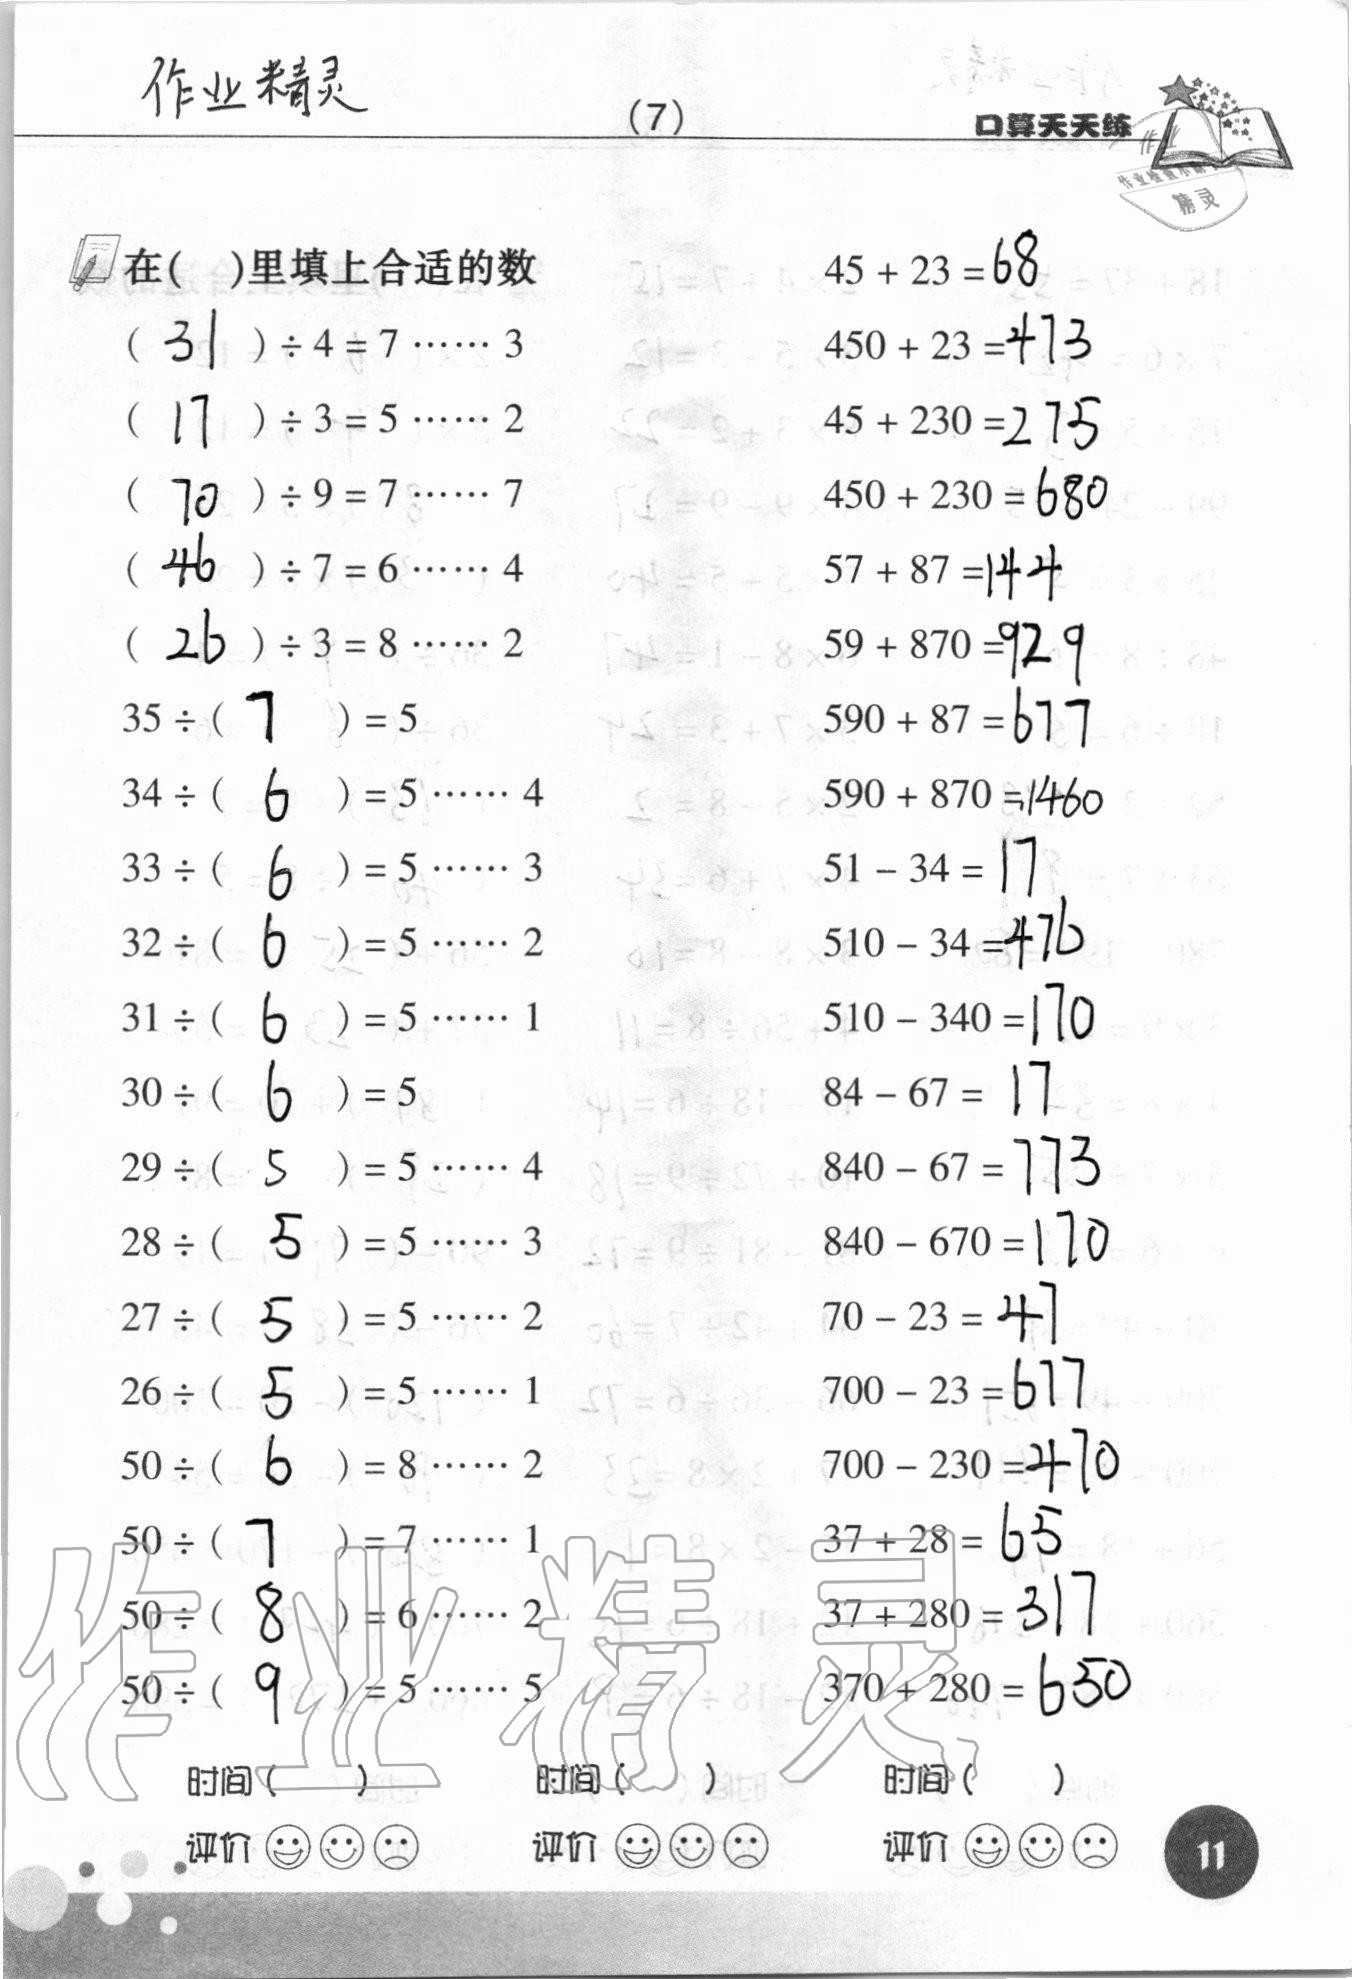 作业精灵
(7)
口算天天练
作业检查小助手
精灵
在(  )里填上合适的数
( 31 ) ÷ 4 = 7 …… 3
( 17 ) ÷ 3 = 5 …… 2
( 70 ) ÷ 9 = 7 …… 7
( 46 ) ÷ 7 = 6 …… 4
( 26 ) ÷ 3 = 8 …… 2
35 ÷ ( 7 ) = 5
34 ÷ ( 6 ) = 5 …… 4
33 ÷ ( 6 ) = 5 …… 3
32 ÷ ( 6 ) = 5 …… 2
31 ÷ ( 6 ) = 5 …… 1
30 ÷ ( 6 ) = 5
29 ÷ ( 5 ) = 5 …… 4
28 ÷ ( 5 ) = 5 …… 3
27 ÷ ( 5 ) = 5 …… 2
26 ÷ ( 5 ) = 5 …… 1
50 ÷ ( 6 ) = 8 …… 2
50 ÷ ( 7 ) = 7 …… 1
50 ÷ ( 8 ) = 6 …… 2
50 ÷ ( 9 ) = 5 …… 5
45 + 23 = 68
450 + 23 = 473
45 + 230 = 275
450 + 230 = 680
57 + 87 = 144
59 + 870 = 929
590 + 87 = 677
590 + 870 = 1460
51 − 34 = 17
510 − 34 = 476
510 − 340 = 170
84 − 67 = 17
840 − 67 = 773
840 − 670 = 170
70 − 23 = 47
700 − 23 = 677
700 − 230 = 470
37 + 28 = 65
37 + 280 = 317
370 + 280 = 650
作业精灵
时间(  ) 时间(  ) 时间(  )
评价 评价 评价
11